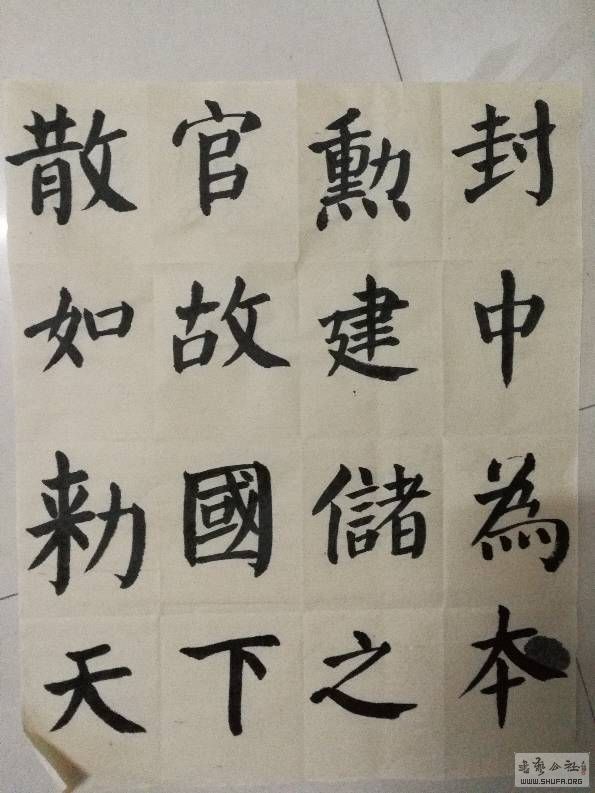 散官勳封
如故建中
勑國儲為
天下之本
书艺公社
WWW.SHUFA.ORG